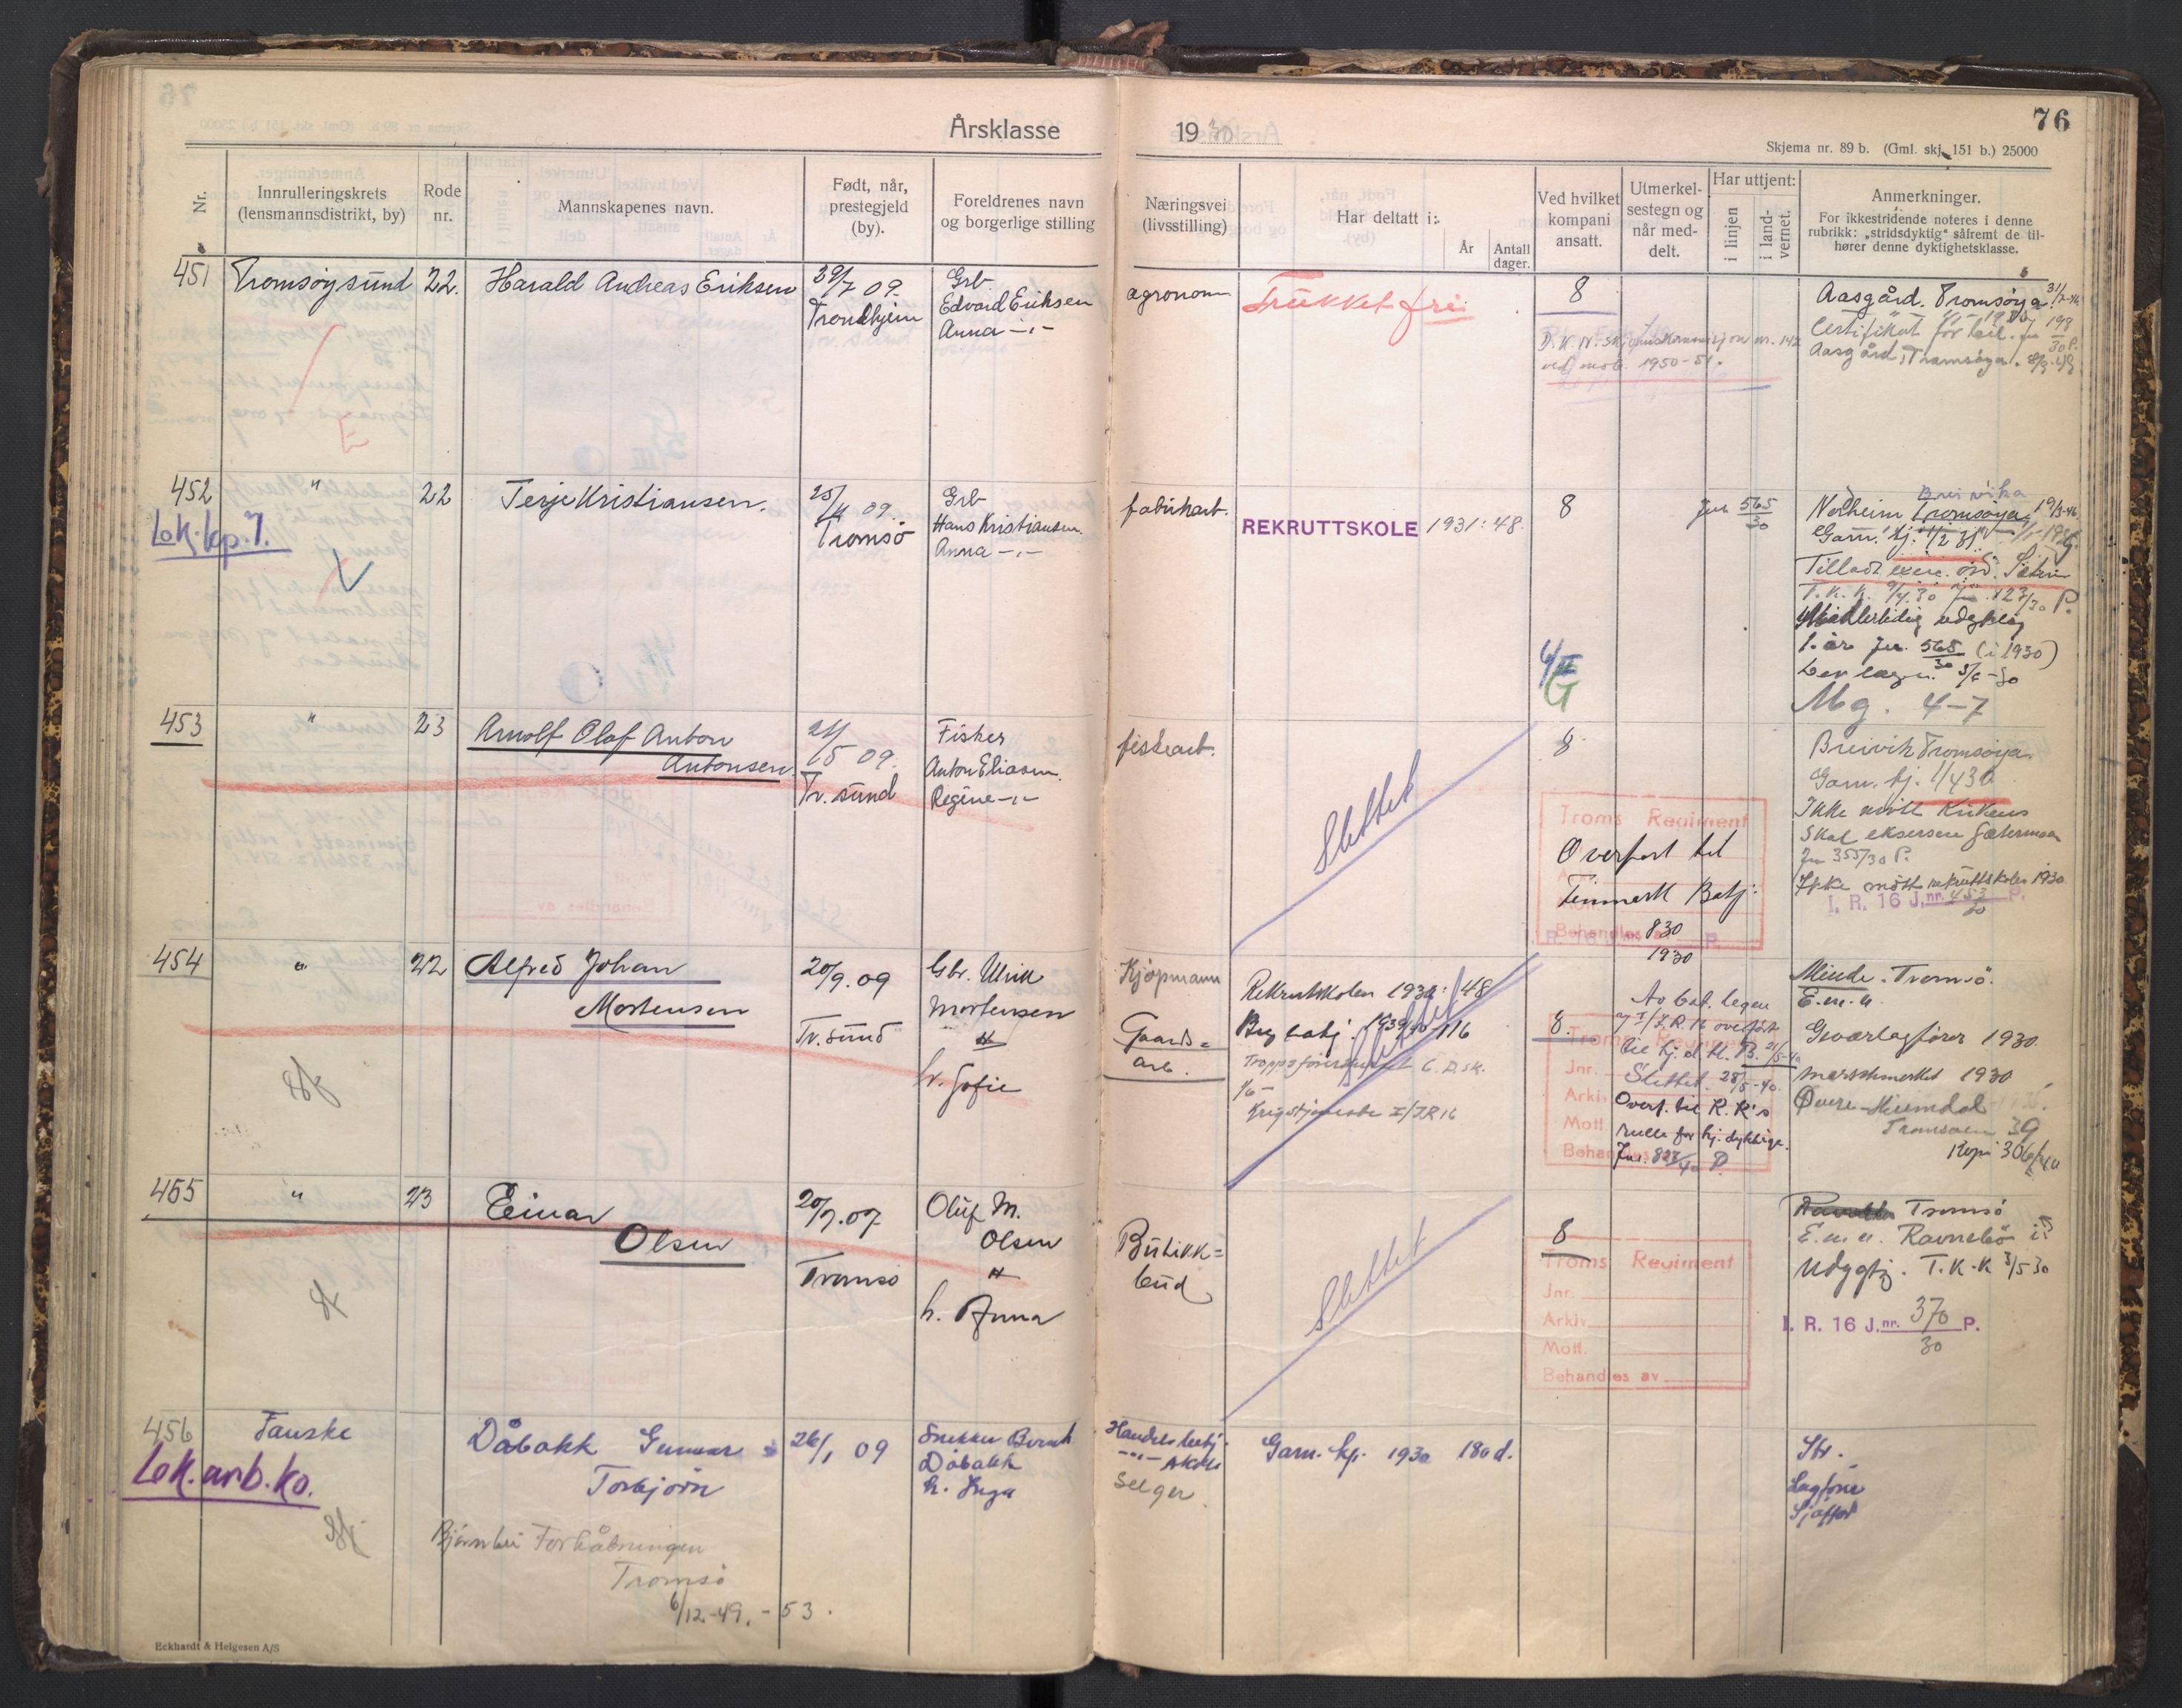 76
Årsklasse 1930
Skjema nr. 89 b. (Gml. skj. 151 b.) 25000
Nr.
Innrulleringskrets
(lensmannsdistrikt, by)
Rode
nr.
Mannskapenes navn.
Født, når,
prestegjeld
(by).
Foreldrenes navn
og borgerlige stilling
Næringsvei
(livsstilling)
Har deltatt i:
År
Antall
dager.
Ved hvilket
kompani
ansatt.
Utmerkel-
sestegn og
når med-
delt.
Har uttjent:
i linjen
i land-
vernet.
Anmerkninger.
For ikkestridende noteres i denne
rubrikk: „stridsdyktig“ såfremt de til-
hører denne dyktighetsklasse.
451
Tromsøysund
22.
Harald Andreas Eriksen
39/7 09.
Trondhjem
Grb.
Edvard Eriksen
Anna -"-
agronom
Trukket fri
8
ved mob. 1950-51.
Aasgård. Tromsøya 31/7-46
Certifikat for bil. 198
30 P.
Aasgård, Tromsøya.
E
452
"
22
Lok.kp.7.
Terje Kristiansen.
25/4 09.
Tromsö
Grb
Hans Kristiansen.
Anna -"-
fabrikarb.
REKRUTTSKOLE 1931: 48.
8
Jnr 565
30
Breivika
Nordheim Tromsøya
Garn. tj. 1/2 31.
Tillatt exec. ved. Sæter
T.K.K. 9/4.30 Jnr. 123/30 P.
Midlertidig udyktig
1. år Jnr. 565 (i 1930)
30
Mg. 4-7
G
453
"
23
Arnolf Olaf Anton
Antonsen.
21/5 09.
Tr. sund
Fisker
Anton Eliasen.
Regine -"-
fiskearb.
Slettet
8
Troms Regiment
Overført til
Finnmark Batj:
Behandles av
830
1930
Breivik Tromsøya.
Garn. tj. 1/4 30
Ikke møtt
Skal eksersere Sætermoen
Jnr 355/30 P.
Ikke møtt rekruttskolen 1930
I. R. 16 J. nr. 453 P.
30
454
"
22
Alfred Johan
Mortensen
20/9. 09
Tr. sund
Gbr. Ulrik
Mortensen
"
h. Sofie
Kjøpmann
Gaards=
arb.
Rekrutskolen 1930: 48
1939/40 116
Slettet
Krigstjeneste I/IR 16
8.
Troms Regiment
Jnr.
Arkiv.
Mott.
Behandles av
Av bat. legen
v/ I/I.R. 16 overført
til tj. d. kl. B. 21/5-40
Slettet. 28/5-40.
Overf. til R. R's
rulle for hj. dyktige.
Jnr. 827/40 P.
Minde. Tromsö.
E.m.u.
Geværlagfører 1930.
marschmerket 1930
39
455
"
23
Einar
Olsen
20/7. 07
Tromsö
Oluf M.
Olsen
"
h. Anna
Butikk=
bud
Slettet
8
Troms Regiment
Jnr.
Arkiv.
Mott.
Behandles av
Tromsö
E.m.u.
Udygtig. T.K.K 3/5 30
I. R. 16 J. nr. 370 P.
30
456
Fauske
Lok.arb.ko.
Dåbakk Gunnar
Torbjörn
26/1 09
Snekker Bernh
Dåbakk
h. Inga
Selger
Garn. kp. 1930 180 d.
Str.
Lagfører
Sjåfför
Bjørnhei Forhåbningen
Tromsö
6/12-49. - 53.
Eckhardt & Helgesen A/S